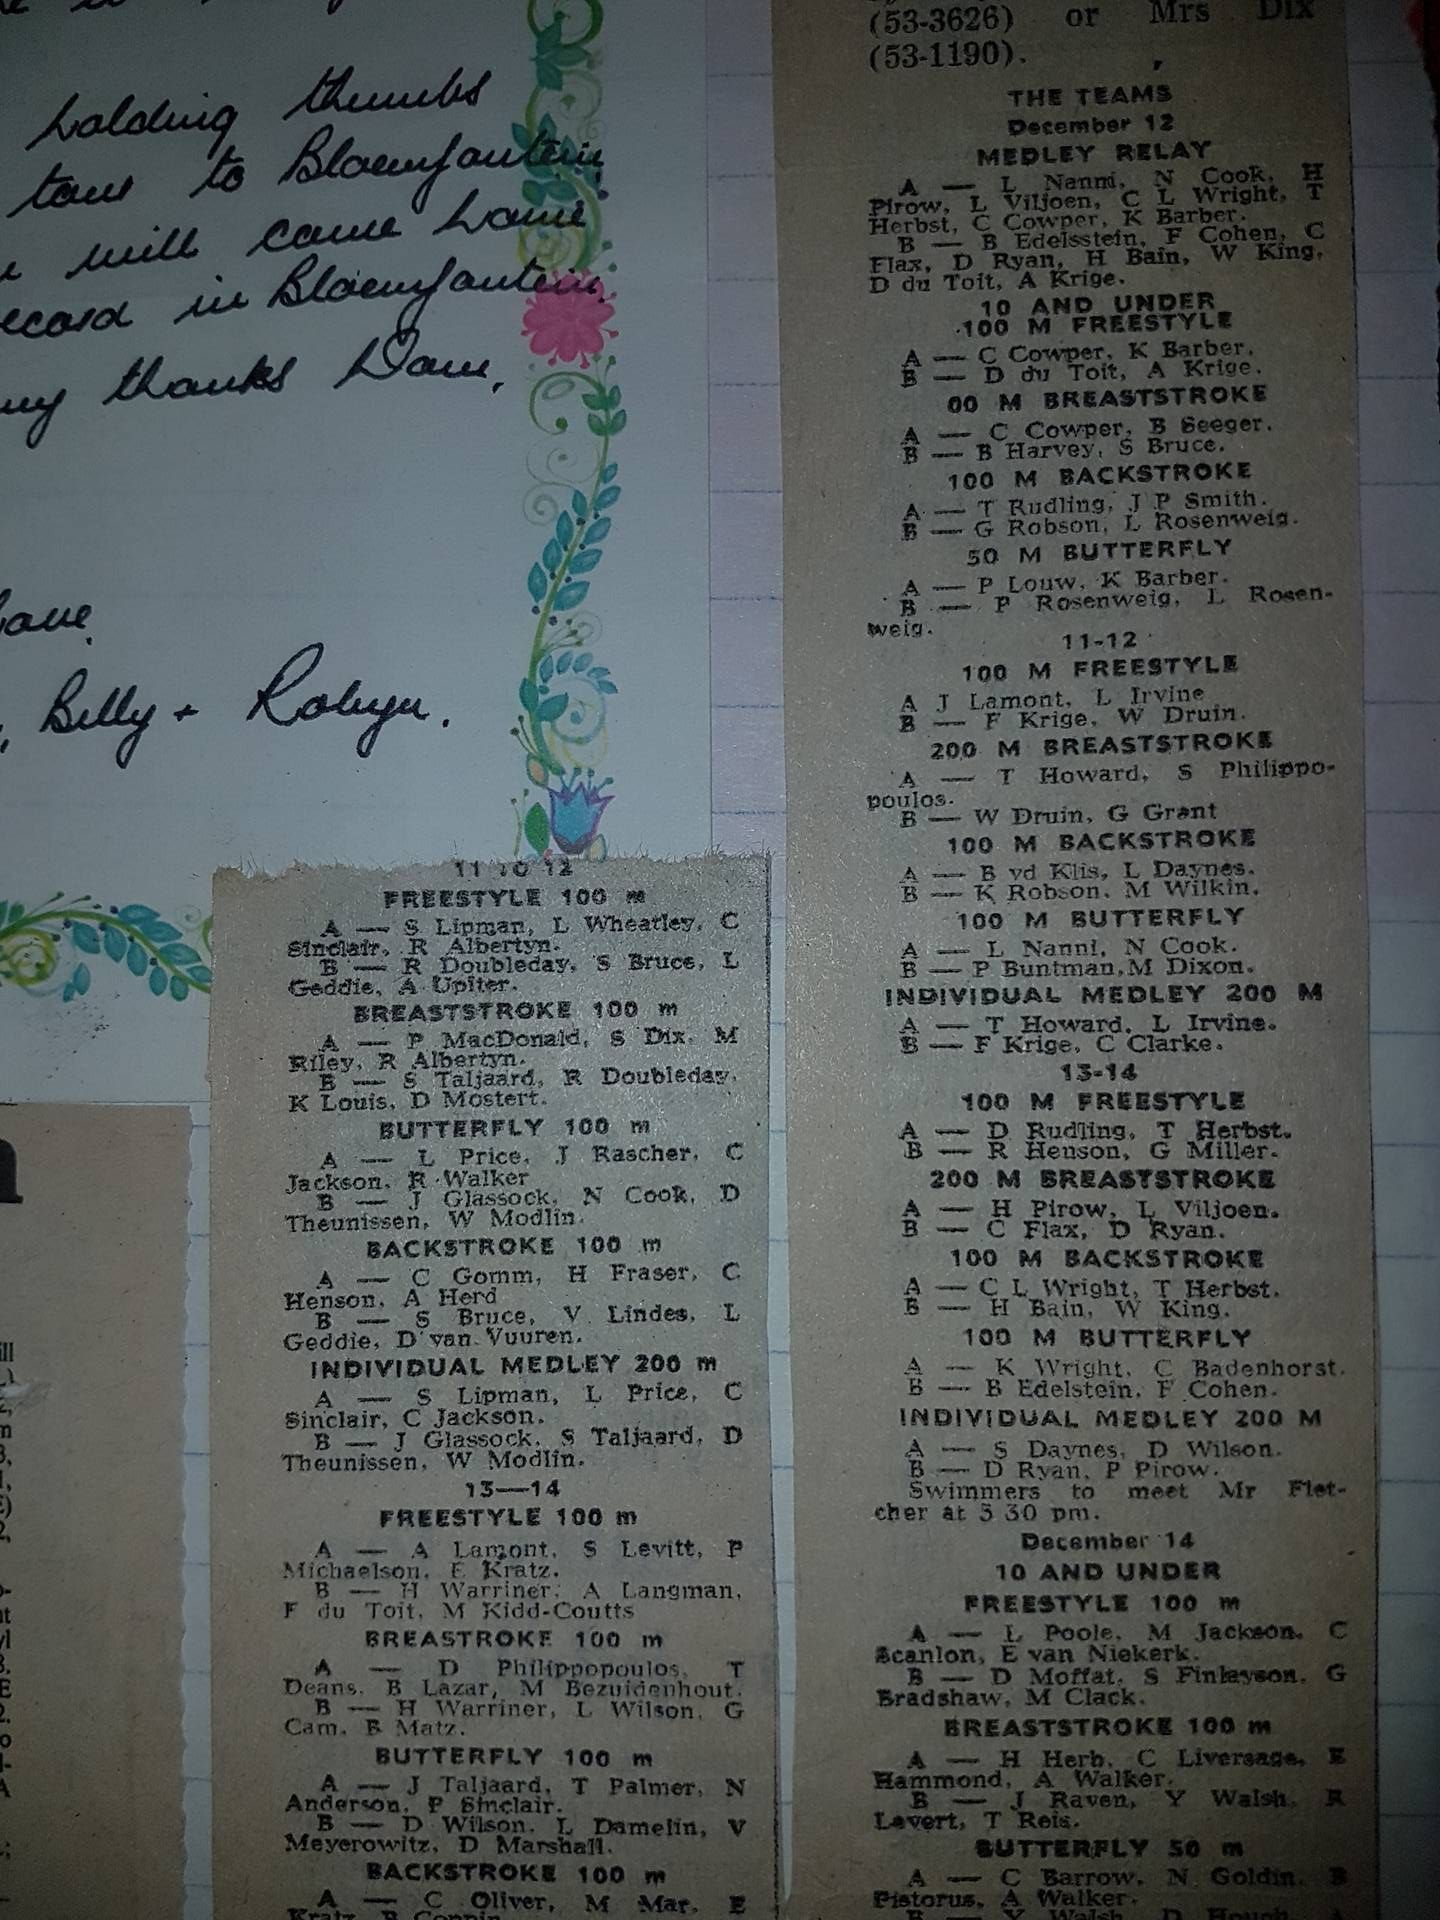 holding thumbs
to Bloemfontein
will come home
in Bloemfontein
thanks Dave,
Billy + Robyn.
11 TO 12
FREESTYLE 100 m
A — S Lipman, L Wheatley, C
Sinclair, R Albertyn.
B — R Doubleday, S Bruce, L
Geddie, A Upiter.
BREASTSTROKE 100 m
A — P MacDonald, S Dix, M
Riley, R Albertyn.
B — S Taljaard, R Doubleday,
K Louis, D Mostert.
BUTTERFLY 100 m
A — L Price, J Rascher, C
Jackson, R Walker
B — J Glassock, N Cook, D
Theunissen, W Modlin.
BACKSTROKE 100 m
A — C Gomm, H Fraser, C
Henson, A Herd
B — S Bruce, V Lindes, L
Geddie, D van Vuuren.
INDIVIDUAL MEDLEY 200 m
A — S Lipman, L Price, C
Sinclair, C Jackson.
B — J Glassock, S Taljaard, D
Theunissen, W Modlin.
13—14
FREESTYLE 100 m
A — A Lamont, S Levitt, P
Michaelson, E Kratz.
B — H Warriner, A Langman,
F du Toit, M Kidd-Coutts
BREASTROKE 100 m
A — D Philippopoulos, T
Deans, B Lazar, M Bezuidenhout.
B — H Warriner, L Wilson, G
Cam, B Matz.
BUTTERFLY 100 m
A — J Taljaard, T Palmer, N
Anderson, P Sinclair.
B — D Wilson, L Damelin, V
Meyerowitz, D Marshall.
BACKSTROKE 100 m
A — C Oliver, M Mar, E
(53-3626) or Mrs Dix
(53-1190).
THE TEAMS
December 12
MEDLEY RELAY
A — L Nanni, N Cook, H
Pirow, L Viljoen, C L Wright, T
Herbst, C Cowper, K Barber.
B — B Edelsstein, F Cohen, C
Flax, D Ryan, H Bain, W King,
D du Toit, A Krige.
10 AND UNDER
100 M FREESTYLE
A — C Cowper, K Barber.
B — D du Toit, A Krige.
00 M BREASTSTROKE
A — C Cowper, B Seeger.
B — B Harvey, S Bruce.
100 M BACKSTROKE
A — T Rudling, J P Smith.
B — G Robson, L Rosenweig.
50 M BUTTERFLY
A — P Louw, K Barber.
B — P Rosenweig, L Rosen-
weig.
11-12
100 M FREESTYLE
A J Lamont, L Irvine
B — F Krige, W Druin.
200 M BREASTSTROKE
A — T Howard, S Philippo-
poulos.
B — W Druin, G Grant
100 M BACKSTROKE
A — B vd Klis, L Daynes.
B — K Robson, M Wilkin.
100 M BUTTERFLY
A — L Nanni, N Cook.
B — P Buntman, M Dixon.
INDIVIDUAL MEDLEY 200 M
A — T Howard, L Irvine.
B — F Krige, C Clarke.
13-14
100 M FREESTYLE
A — D Rudling, T Herbst.
B — R Henson, G Miller.
200 M BREASTSTROKE
A — H Pirow, L Viljoen.
B — C Flax, D Ryan.
100 M BACKSTROKE
A — C L Wright, T Herbst.
B — H Bain, W King.
100 M BUTTERFLY
A — K Wright, C Badenhorst.
B — B Edelstein, F Cohen.
INDIVIDUAL MEDLEY 200 M
A — S Daynes, D Wilson.
B — D Ryan, P Pirow.
Swimmers to meet Mr Flet-
cher at 5 30 pm.
December 14
10 AND UNDER
FREESTYLE 100 m
A — L Poole, M Jackson, C
Scanlon, E van Niekerk.
B — D Moffat, S Finlayson, G
Bradshaw, M Clack.
BREASTSTROKE 100 m
A — H Herb, C Liversage, E
Hammond, A Walker.
B — J Raven, Y Walsh, R
Levert, T Reis.
BUTTERFLY 50 m
A — C Barrow, N Goldin, B
Pistorus, A Walker.